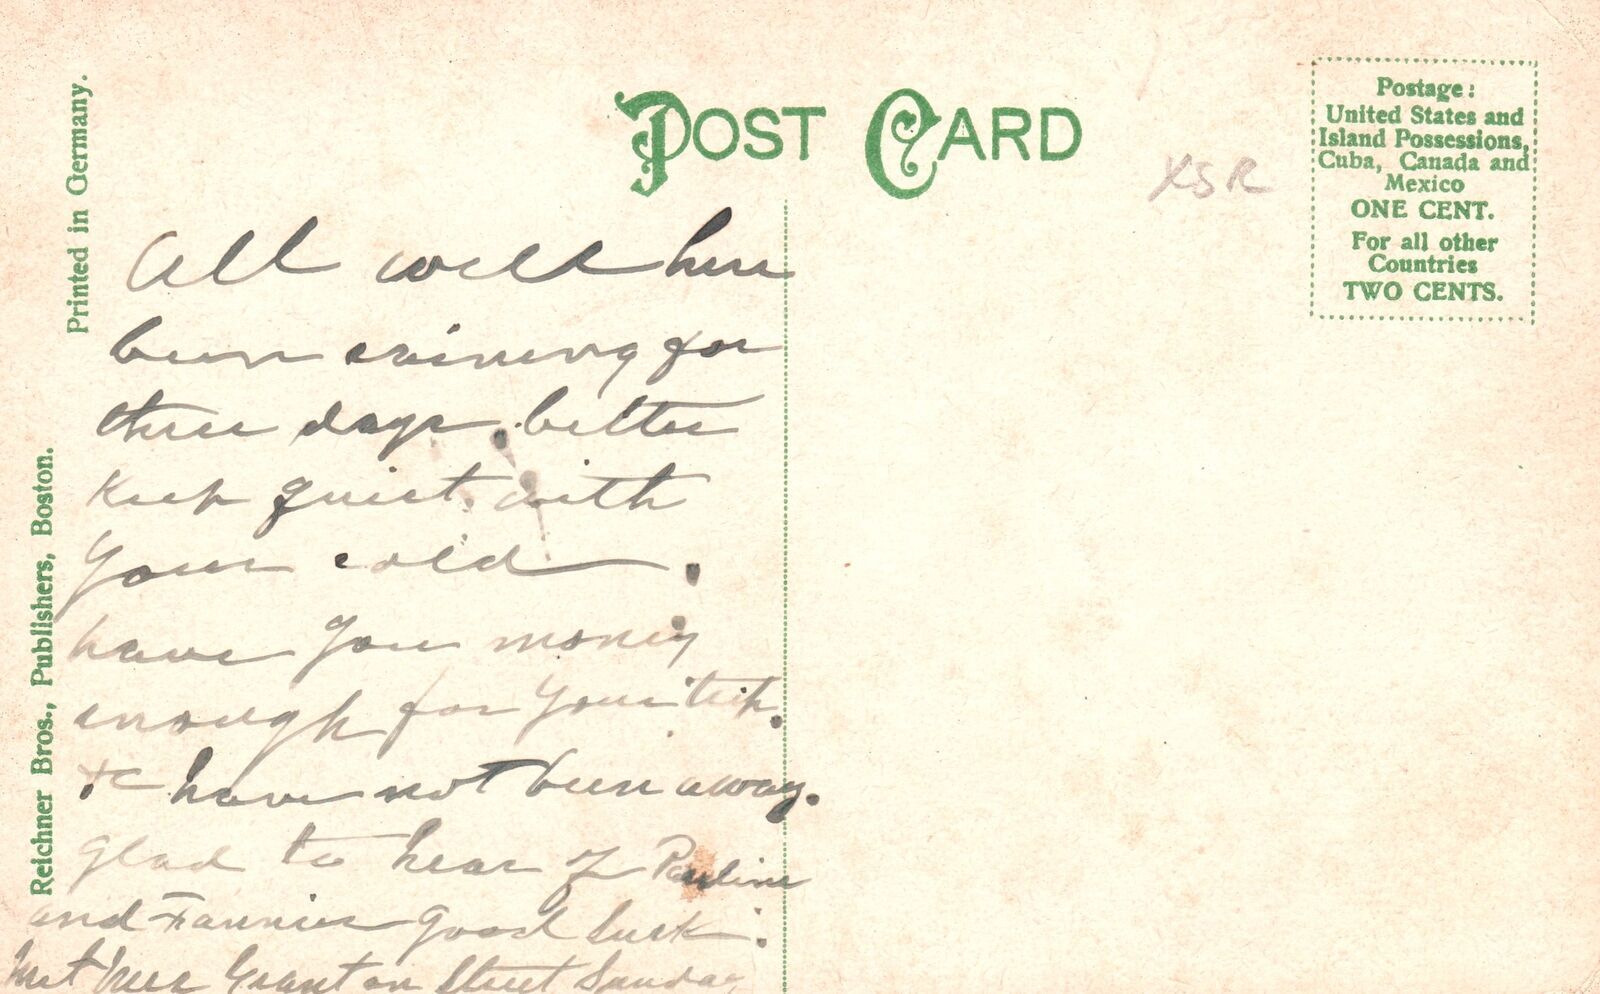 POST CARD
Postage:
United States and
Island Possessions,
Cuba, Canada and
Mexico
ONE CENT.
For all other
Countries
TWO CENTS.
XSR
Printed in Germany.
Reichner Bros., Publishers, Boston.
All well here
been raining for
three days. better
keep quiet with
your cold.
have you money
enough for your
have not been away.
glad to hear of Pauline
and Fannies good luck.
met Mrs Grant on Street Sunday